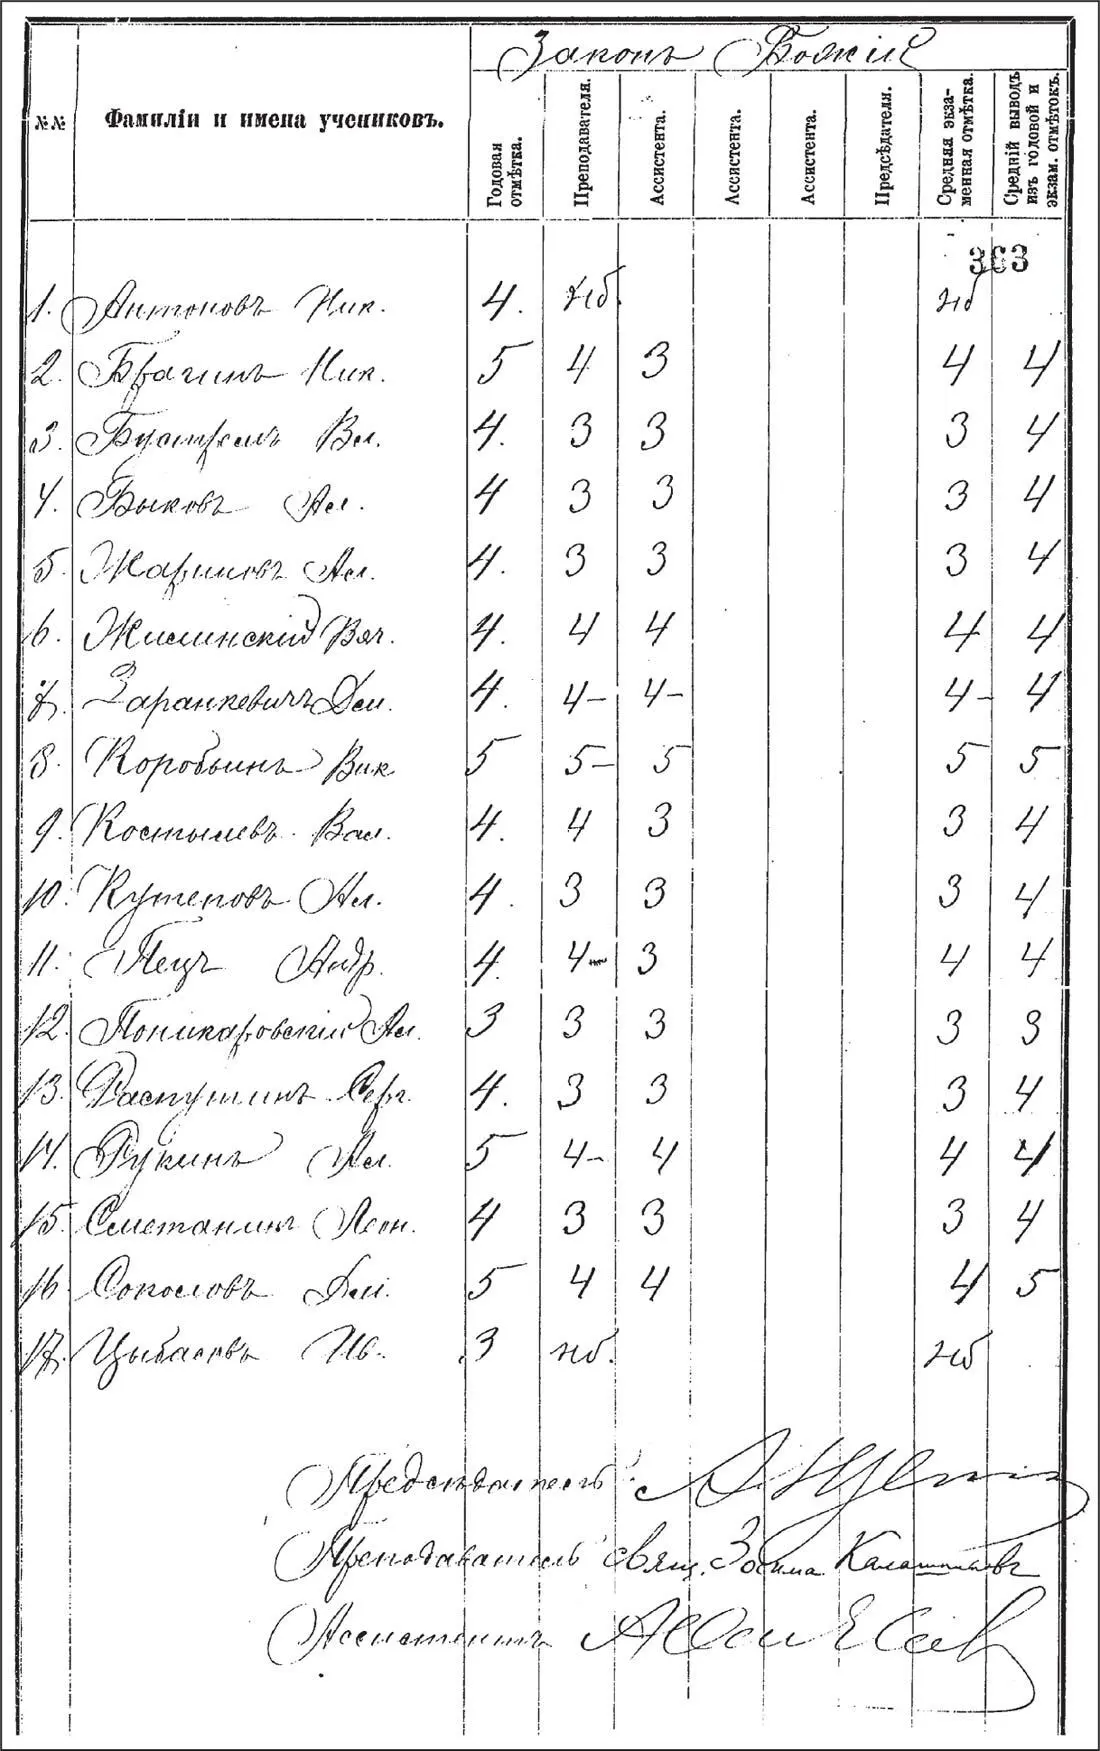 Законъ Божій
№№ Фамиліи и имена учениковъ. Годовая отмѣтка. Преподавателя. Ассистента. Ассистента. Ассистента. Предсѣдателя. Средняя экза-менная отмѣтка. Средній выводъ изъ годовой и экзам. отмѣтокъ.
363
1. Антоновъ Ник. 4. нб. нб
2. Брагинъ Ник. 5 4 3 4 4
3. Бустремъ Вл. 4. 3 3 3 4
4. Быковъ Ал. 4 3 3 3 4
5. Жариновъ Ал. 4. 3 3 3 4
6. Жилинскій Вяч. 4. 4 4 4 4
7. Заранкевичъ 4. 4- 4- 4- 4
8. Коробьинъ Вик 5 5- 5 5 5
9. Костылевъ Вал. 4. 4 3 3 4
10. Кутеповъ Ал. 4. 3 3 3 4
11. Пецъ Андр. 4. 4- 3 4 4
12. Поникаровскій Ал. 3 3 3 3 3
13. Распутинъ Серг. 4. 3 3 3 4
14. Рукинъ Ал. 5 4- 4 4 4
15. Сметанинъ Леон. 4 3 3 3 4
16 Соколовъ 5 4 4 4 5
17. Цыбасовъ Ив. 3 нб. нб
Предсѣдатель
Преподаватель свящ. Зосима Калашниковъ
Ассистентъ